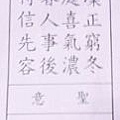 正窮冬
喜氣濃
人事後
信先容
聖
意